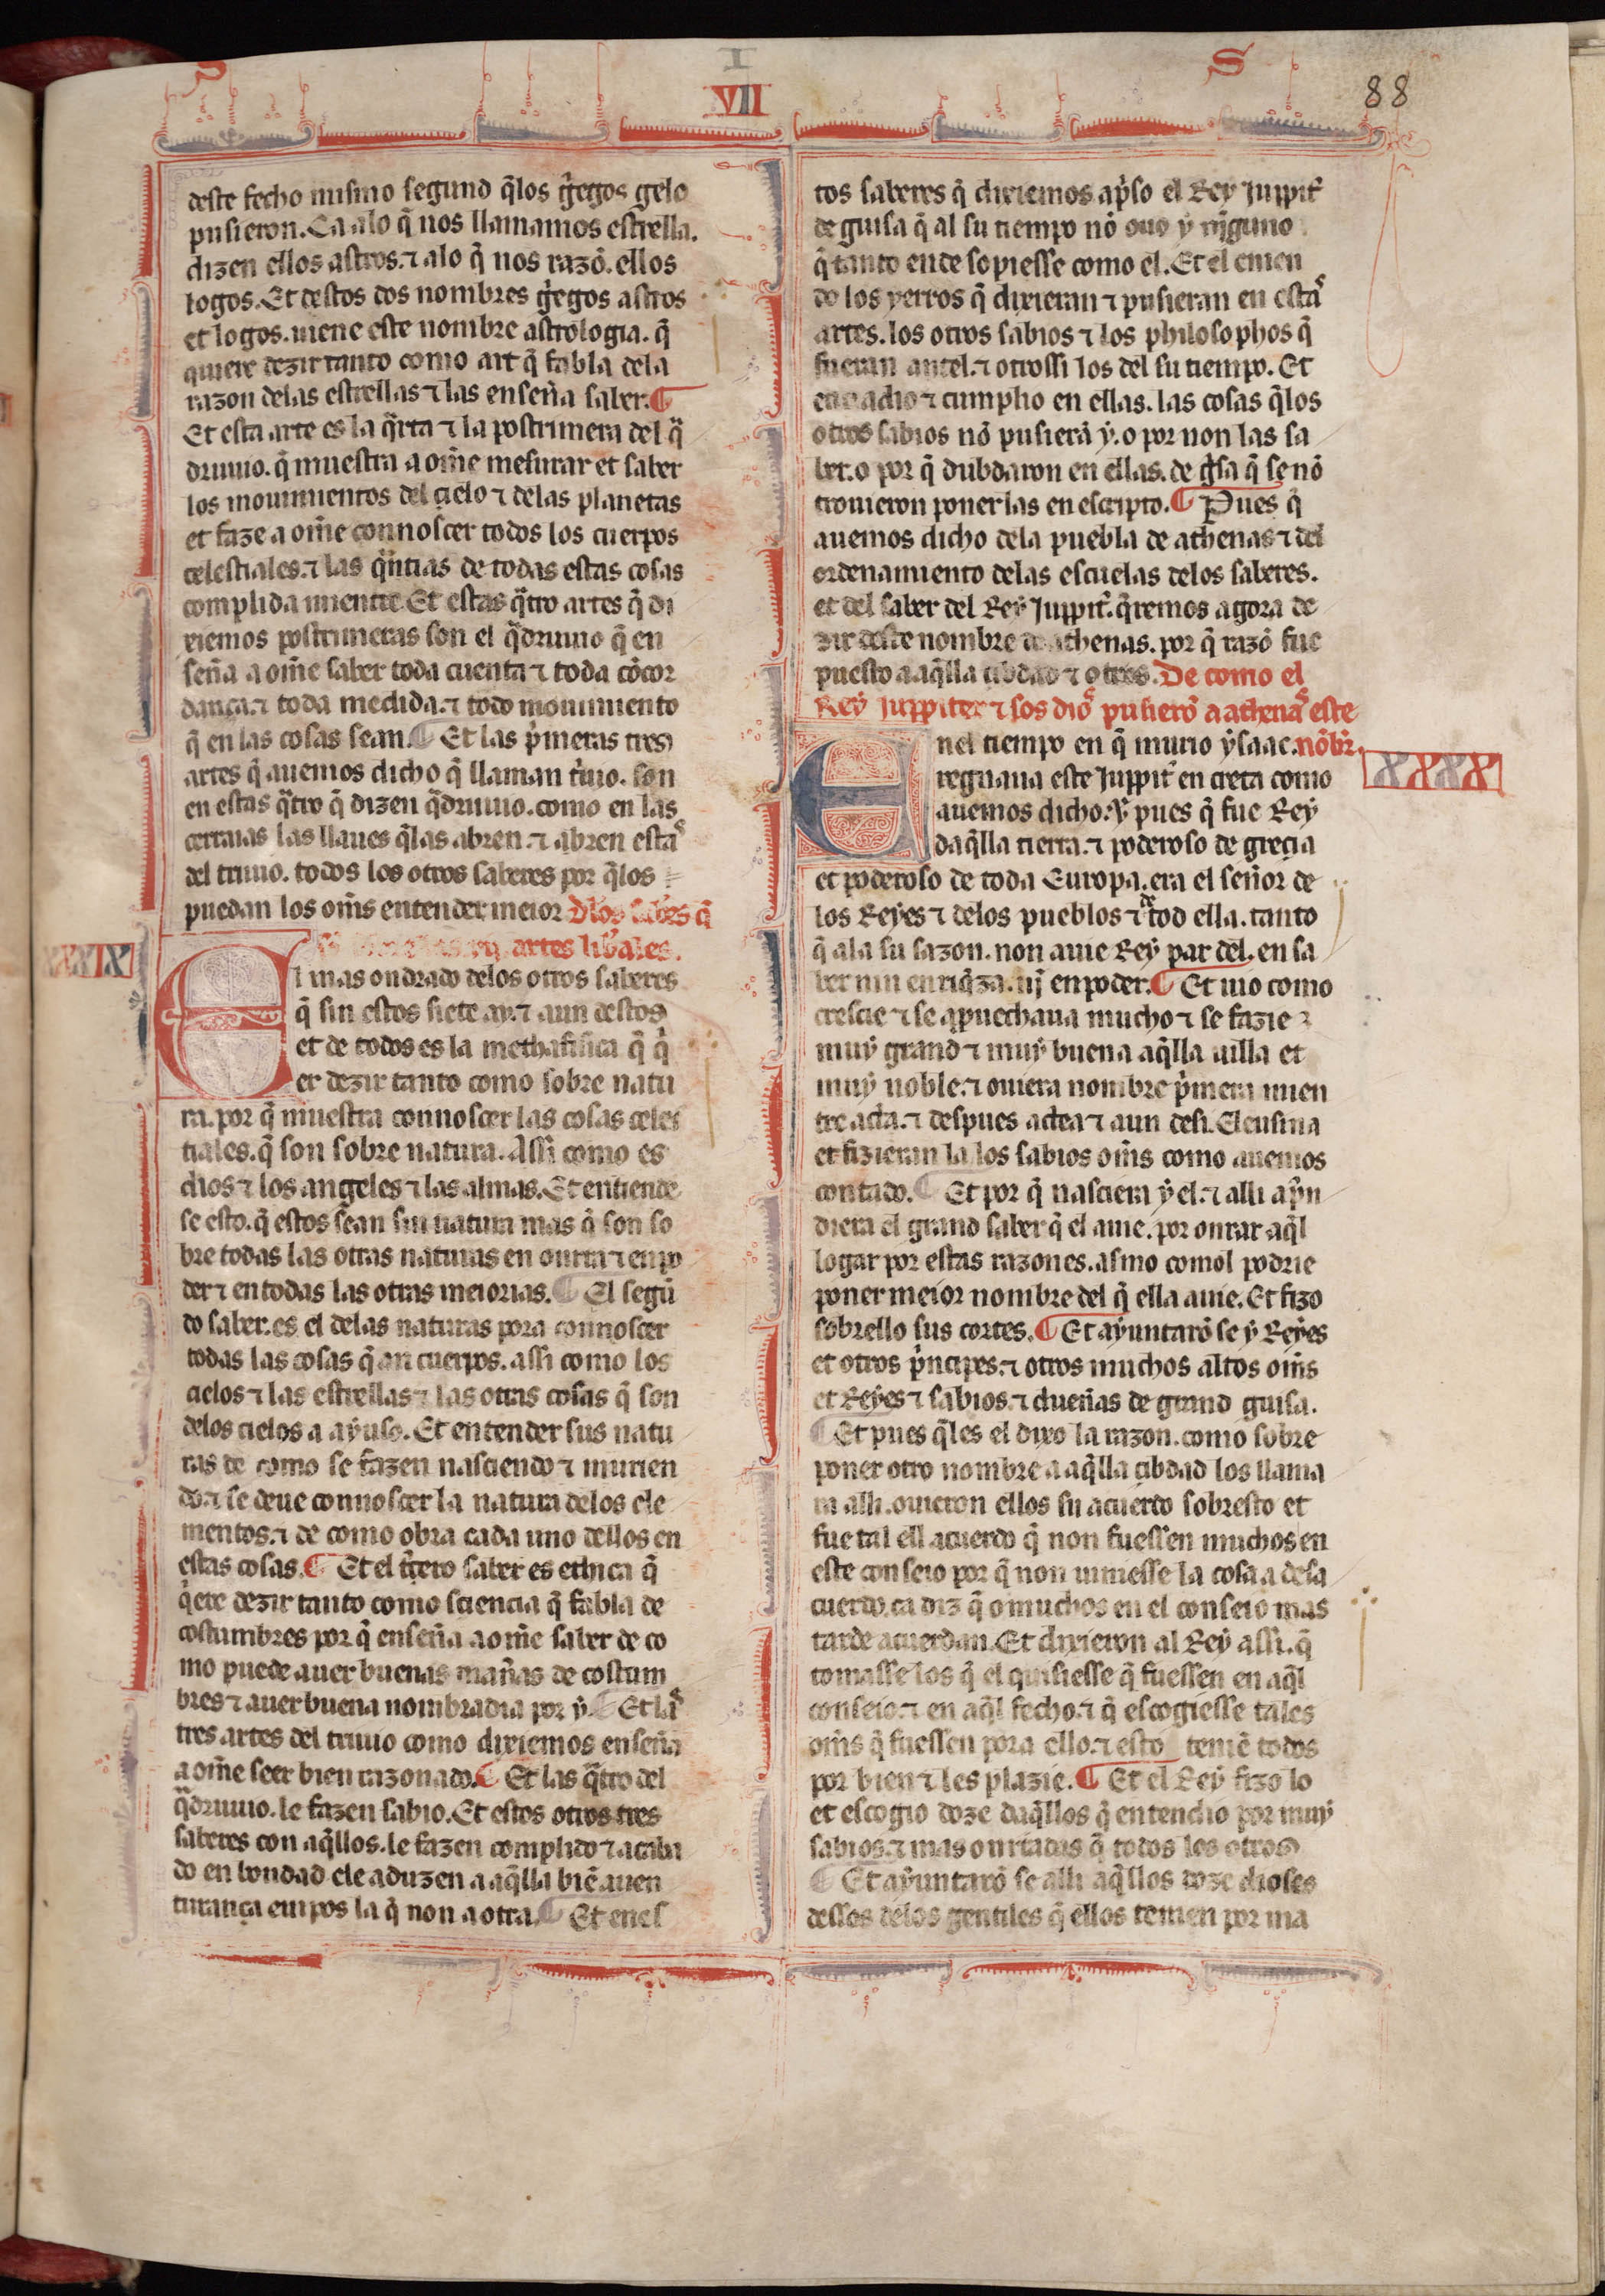 S I S
VII
88
deste fecho mismo segund q̃los gͥegos gelo
pusieron. Ca alo q̃ nos llamamos estrella.
dizen ellos astros. ⁊ alo q̃ nos razõ. ellos
logos. Et destos dos nombres gͥegos astros
et logos. uiene este nombre astrologia. q̃
quiere dezir tanto como art q̃ fabla dela
razon delas estrellas ⁊ las enseña saber. ¶
Et esta arte es la qͣrta ⁊ la postrimera del qͣ
druuio. q̃ muestra a om̃e mesurar et saber
los mouimientos del cielo ⁊ delas planetas
et faze a om̃e connoscer todos los cuerpos
celestiales. ⁊ las qͣntias de todas estas cosas
complida mientre. Et estas qͣtro artes q̃ di
xiemos postrimeras son el qͣdruuio q̃ en
seña a om̃e saber toda cuenta ⁊ toda cõcor
dança. ⁊ toda medida. ⁊ todo mouimiento
q̃ en las cosas sean. ¶ Et las pͥmeras tres
artes q̃ auemos dicho q̃ llaman tͥuio. son
en estas qͣtro q̃ dizen qͣdruuio. como en las
cerraias las llaues q̃las abren. ⁊ abren estaˢ
del triuio. todos los otros saberes por q̃los
puedan los om̃s entender meior Dlos sabres q̃
artes lib̾ales.
XXXIX
El mas ondrado delos otros saberes
q̃ sin estos siete ay. ⁊ aun destos
et de todos es la methafisica q̃ qͥ
er dezir tanto como sobre natu
ra. por q̃ muestra connoscer las cosas celes
tiales. q̃ son sobre natura. Assi como es
dios ⁊ los angeles ⁊ las almas. Et entiende
se esto. q̃ estos sean sin natura mas q̃ son so
bre todas las otras naturas en onrra ⁊ en po
der ⁊ en todas las otras meiorias. ¶ El segũ
do saber. es el delas naturas pora connoscer
todas las cosas q̃ an cuerpos. assi como los
cielos ⁊ las estrellas ⁊ las otras cosas q̃ son
delos cielos a ayuso. Et entender sus natu
ras de como se fazen nasciendo ⁊ murien
do. ⁊ se deue connoscer la natura delos ele
mentos. ⁊ de como obra cada uno dellos en
estas cosas. ¶ Et el tͥcero saber es ethica q̃
qͥere dezir tanto como sciencia q̃ fabla de
costumbres por q̃ enseña a om̃e saber de co
mo puede auer buenas mañas de costum
bres ⁊ auer buena nombradia por ẏ. ¶ Et laˢ
tres artes del triuio como dixiemos enseñã
a om̃e seer bien razonado. ¶ Et las qͣtro del
qͣdruuio. le fazen sabio. Et estos otros tres
saberes con aq̃llos. le fazen complido ⁊ acaba
do en bondad ele aduzen a aq̃lla biẽ auen
turança empos la q̃ non a otra. ¶ Et enes
tos saberes q̃ dixiemos apͥso el Rey Juppit̾
de guisa q̃ al su tiempo nõ ouo ẏ nĩguno
q̃ tanto ende sopiesse como el. Et el emen
do los yerros q̃ dixieran ⁊ pusieran en estaˢ
artes. los otros sabios ⁊ los philosophos q̃
fueran antel. ⁊ otrossi los del su tiempo. Et
enadio ⁊ cumplio en ellas. las cosas q̃los
otros sabios nõ pusierã ẏ. o por non las sa
ber. o por q̃ dubdaron en ellas. de gͥsa q̃ se nõ
trouieron ponerlas en escripto. ¶ Pues q̃
auemos dicho dela puebla de athenas ⁊ del
ordenamiento delas escuelas delos saberes.
et del saber del Rey Juppit̾. q̃remos agora de
zir deste nombre de athenas. por q̃ razõ fue
puesto a aq̃lla cibdad ⁊ otros. De como el
Rey Juppiter ⁊ sos dioˢ pusierõ a athenaˢ este
nõbr̾.
XXXX
En el tiempo en q̃ murio ẏsaac.
regnaua este Juppit̾ en creta como
auemos dicho. Y pues q̃ fue Rey
daq̃lla tierra. ⁊ poderoso de grecia
et poderoso de toda Europa. era el señor de
los Reyes ⁊ delos pueblos ⁊ de tod ella. tanto
q̃ ala su sazon. non auie Rey par del. en sa
ber nin en riq̃za. nĩ en poder. ¶ Et uio como
crescie ⁊ se apuechaua mucho ⁊ se fazie
muẏ grand ⁊ muẏ buena aq̃lla uilla et
muẏ noble. ⁊ ouiera nombre pͥmera mien
tre acta. ⁊ despues actea ⁊ aun desi. Eleusina
et fizieran la los sabios om̃s como auemos
contado. ¶ Et por q̃ nasciera ẏ el. ⁊ alli apͥn
diera el grand saber q̃ el auie. por onrar aq̃l
logar por estas razones. asmo comol podrie
poner meior nombre del q̃ ella auie. Et fizo
sobrello sus cortes. ¶ Et ayuntarõ se ẏ Reyes
et otros pͥncipes. ⁊ otros muchos altos om̃s
et Reyes ⁊ sabios. ⁊ dueñas de grand guisa.
¶ Et pues q̃les el dixo la razon. como sobre
poner otro nombre a aq̃lla cibdad los llama
ra alli. ouieron ellos su acuerdo sobresto et
fue tal ell acuerdo q̃ non fuessen muchos en
este conseio por q̃ non uiniesse la cosa a desa
cuerdo. ca diz q̃ o muchos en el conseio mas
tarde acuerdan. Et dixieron al Rey assi. q̃
tomasse los q̃ el quisiesse q̃ fuessen en aq̃l
conseio. ⁊ en aq̃l fecho. ⁊ q̃ escogiesse tales
om̃s q̃ fuessen pora ello. ⁊ esto teniẽ todos
por bien ⁊ les plazie. ¶ Et el Rey fizo lo
et escogio doze daq̃llos q̃ entendio por muẏ
sabios. ⁊ mas onrrados q̃ todos los otros
¶ Et ayuntarõ se alli aq̃llos doze dioses
dessos delos gentiles q̃ ellos tenien por ma